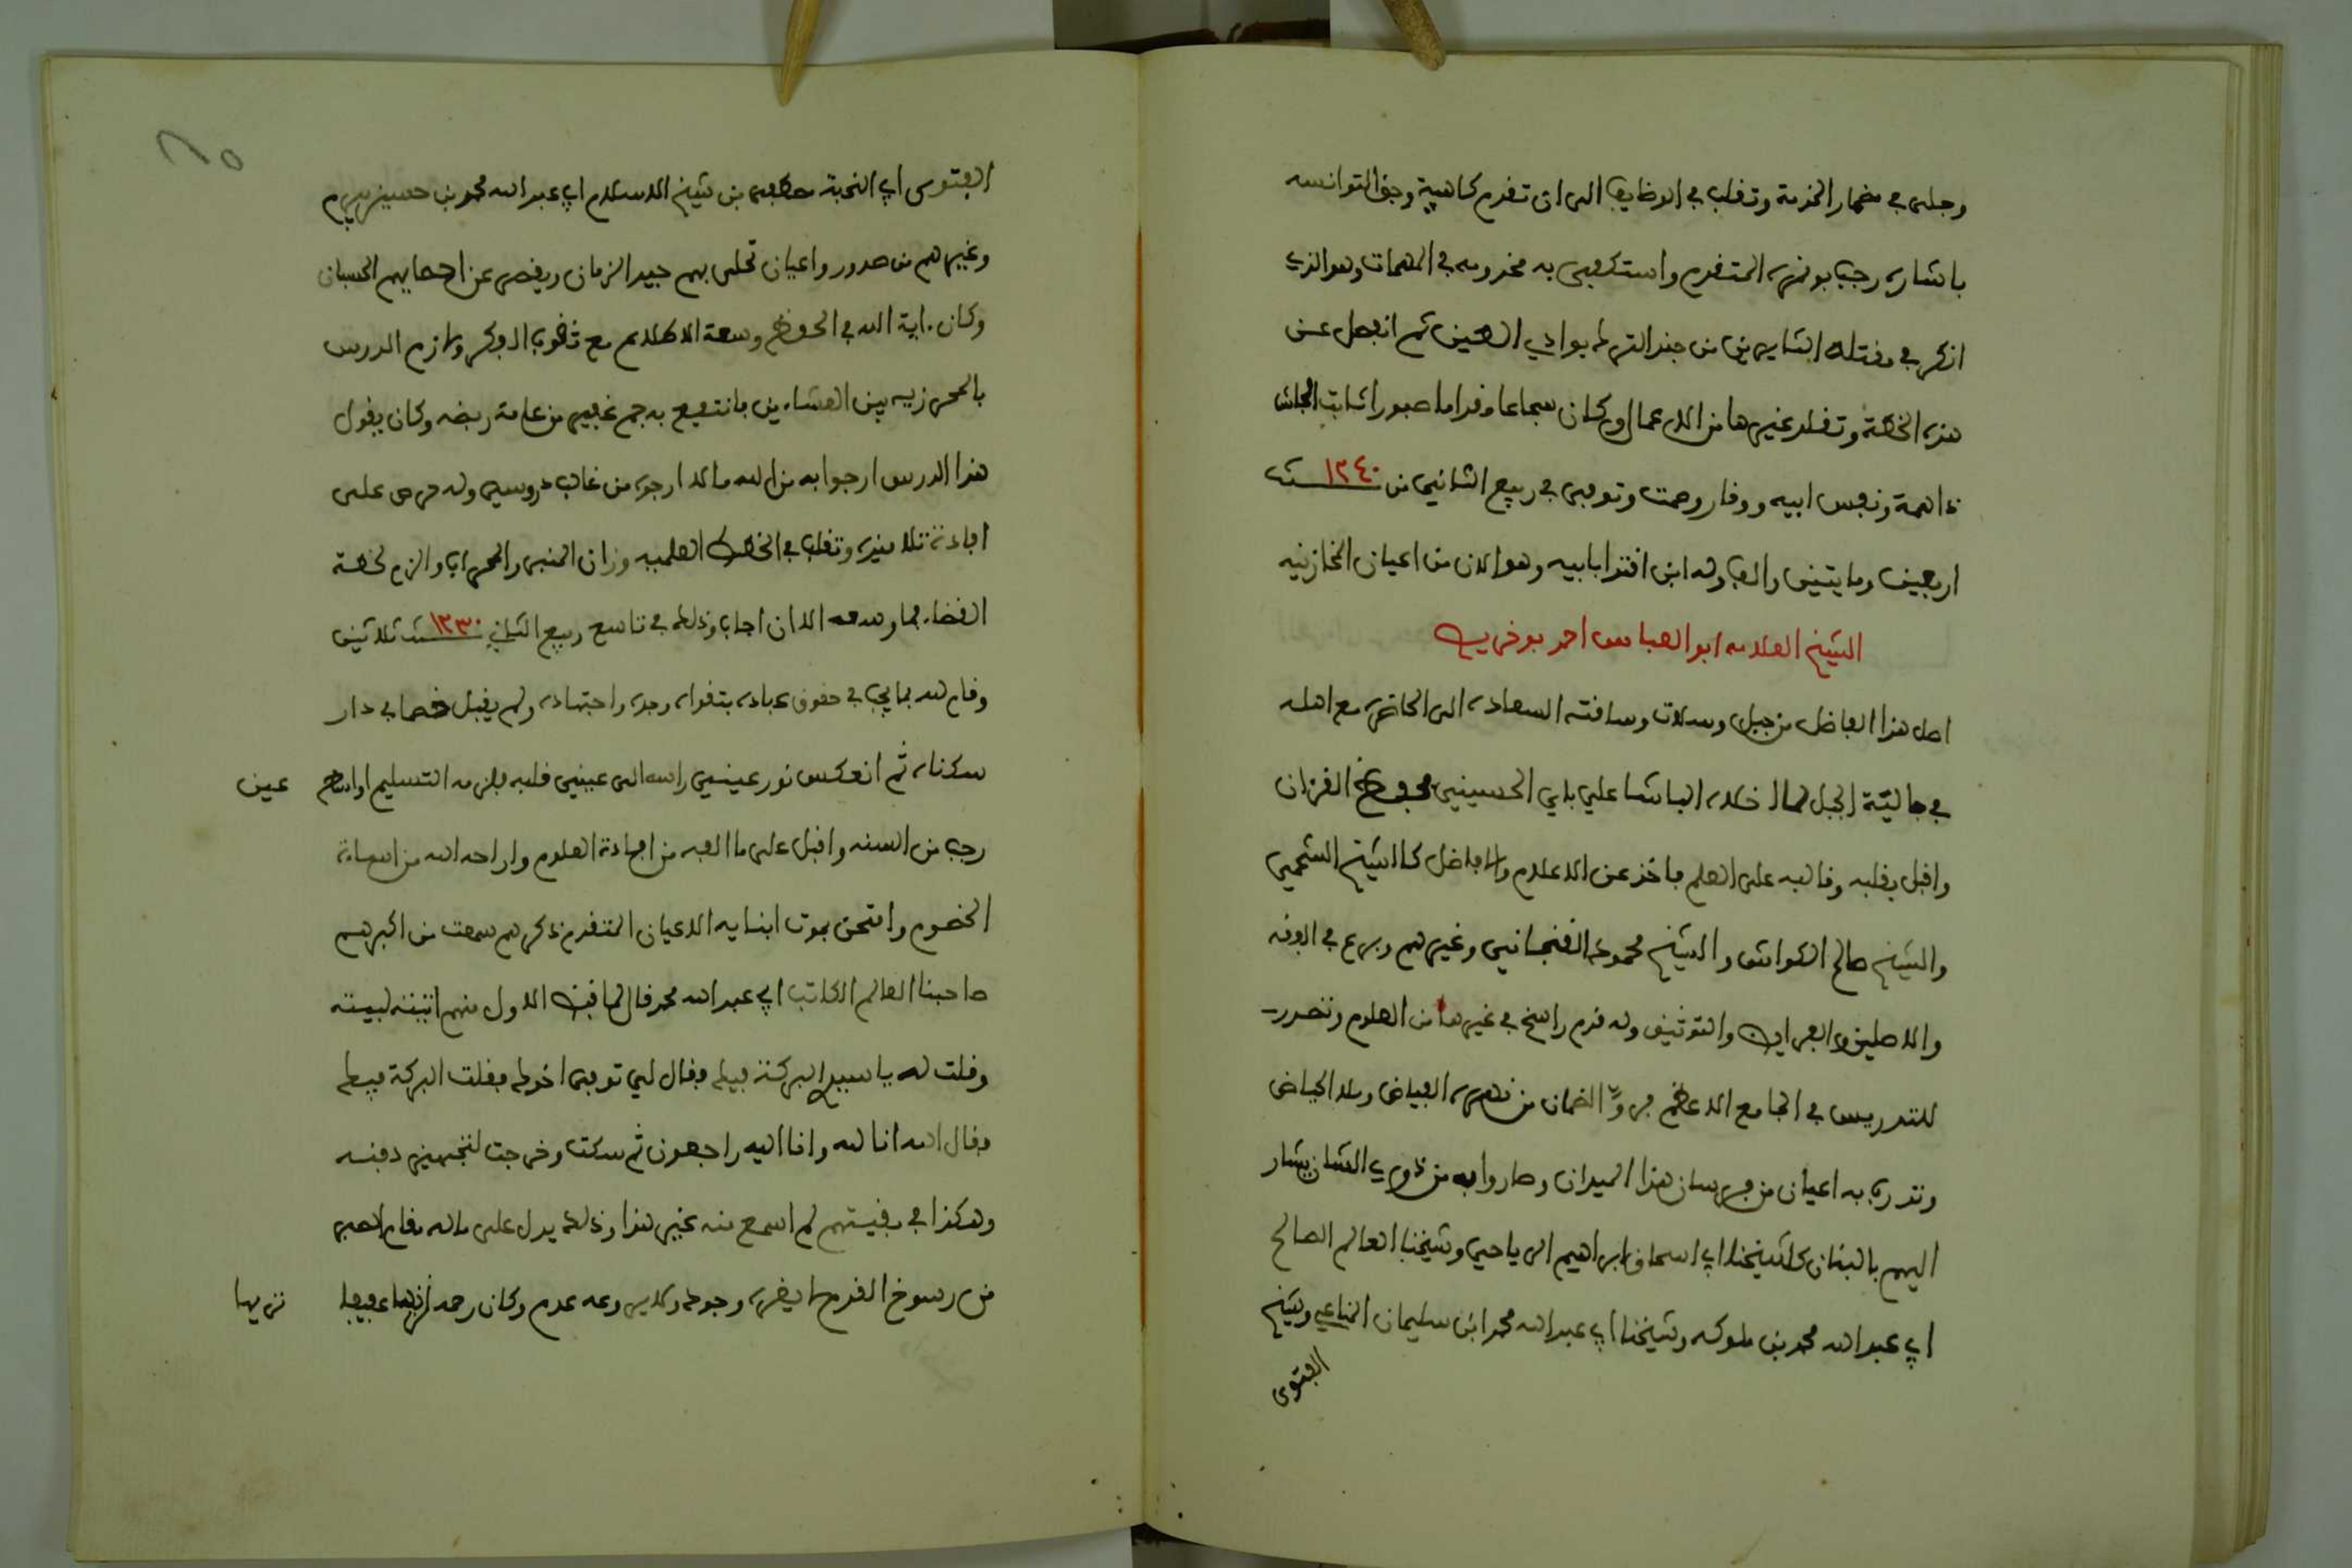 وجلى في مضمار الخدمة وتقلب في الوظايف الى ان تقدم كاهية وجق التوانسه
باشارة رجب بونمرة المتقدم واستكفى به مخدومه في المهمات وهو الذي
انكر في مقتلة الثايرين من جند الترك بوادي الطين ثم انفصل عن
هذه الخطة وتقلد غيرها من الاعمال وكان شجاعا مقداما صبورا ثابت الجاش
ذا همة ونفس ابيه ووقار وصمت وتوفى في ربيع الثاني من سنة ١٢٤٠
اربعين ومايتين والف وله ابن اقتدا بابيه وهو الان من اعيان المخازنيه
الشيخ العلامه ابو العباس احمد بوخريص
اصل هذا الفاضل من جبل وسلات وساقته السعاده الى الحاضرة مع اهله
في جالية الجبل لما اخلاه الباشا علي باي الحسيني فحفظ القرءان
واقبل بقلبه وقالبه على العلم فاخذ عن الاعلام والافاضل كالشيخ الشحمي
والشيخ صالح الكواش والشيخ محمود القنجاني وغيرهم وبرع في الفقه
والاصلين والفرايض والتوثيق وله قدم راسخ في غيرها من العلوم وتصدر
للتدريس في الجامع الاعظم فروّا الظمان من نهره الفياض وملا الحياض
وتدرب به اعيان من فرسان هذا الميدان وصاروا به من ذوي الشان يشار
اليهم بالبنان كشيخنا ابي اسحاق ابراهيم الرياحي وشيخنا العالم الصالح
ابي عبد الله محمد بن ملوكه وشيخنا ابي عبد الله محمد ابن سليمان المناعي وشيخ
الفتوى
الفتوى ابي النخبة مصطفى بن شيخ الاسلام ابي عبد الله محمد بن حسين بيرم
وغيرهم من صدور واعيان تحلى بهم جيد الزمان ويقصر عن احصايهم الحسبان
وكان ءاية الله في الحفظ وسعة الاطلاع مع ثقوب الفكر ولازم الدرس
بالمحرزيه بين العشاءين فانتفع به جم غفير من عامة ربضه وكان يقول
هذا الدرس ارجوا به من الله ما لا ارجوه من غالب دروسي وله حرص على
افادة تلاميذه وتقلب في الخطط العلميه وزان المنبر والمحراب والزم لخطة
القضاء فما وسعه الا ان اجاب وذلك في تاسع ربيع الثاني سنة ١٢٣٠ ثلاثين
وقام لله بما يجب في حقوق عباده بتقواه وجده واجتهاده ولم يقبل خصما في دار
سكناه ثم انعكس نور عيني راسه الى عيني قلبه فلزمه التسليم اواسط عين
رجب من السنه واقبل على ما الفه من افادة العلوم واراحه الله من اساءة
الخصوم وامتحن بموت ابنايه الاعيان المتقدم ذكرهم سمعت من اكبرهم
صاحبنا العالم الكاتب ابي عبد الله محمد قال لما قبض الاول منهم اتيته لبيته
وقلت له يا سيدي البركة فيك فقال لي توفى اخوك فقلت البركة فيك
فقال انا لله وانا اليه راجعون ثم سكت وخرجت لتجهيز دفنه
وهكذا في بقيتهم لم اسمع منه غير هذا وذلك يدل على ماله في مقام الصبر
من رسوخ القدم لا يضره وجود ولا يروعه عدم وكان رحمه نزيها عفيفا
نزيها